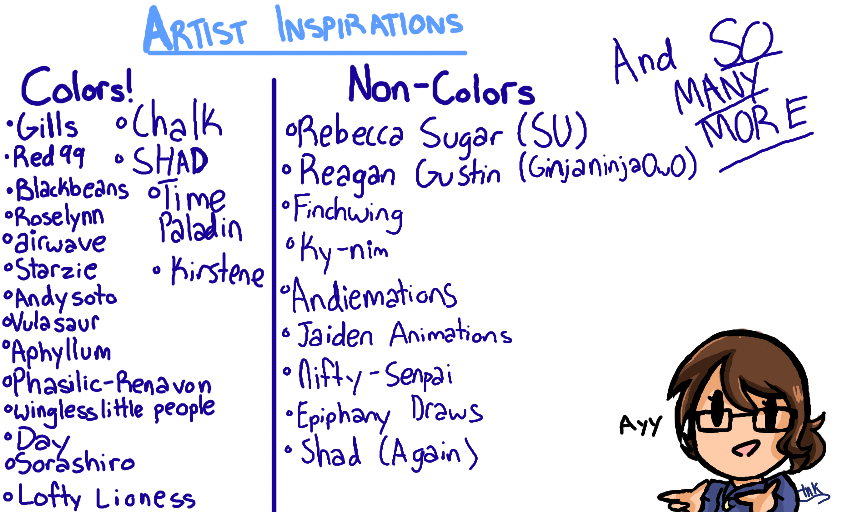 ARTIST INSPIRATIONS
And SO
MANY
MORE
Colors!
•Gills
•Red99
•Blackbeans
•Roselynn
•airwave
•Starzie
•Andysoto
•Vulasaur
•Aphyllum
•Phasilic-Renavon
•winglesslittle people
•Day
•Sorashiro
•Lofty Lioness
•Chalk
•SHAD
•Time
Paladin
•Kirstene
Non-Colors
•Rebecca Sugar (SU)
•Reagan Gustin (GinjaninjaOwO)
•Finchwing
•Ky-nim
•Andiemations
•Jaiden Animations
•Nifty-Senpai
•Epiphany Draws
•Shad (Again)
Ayy
Ink